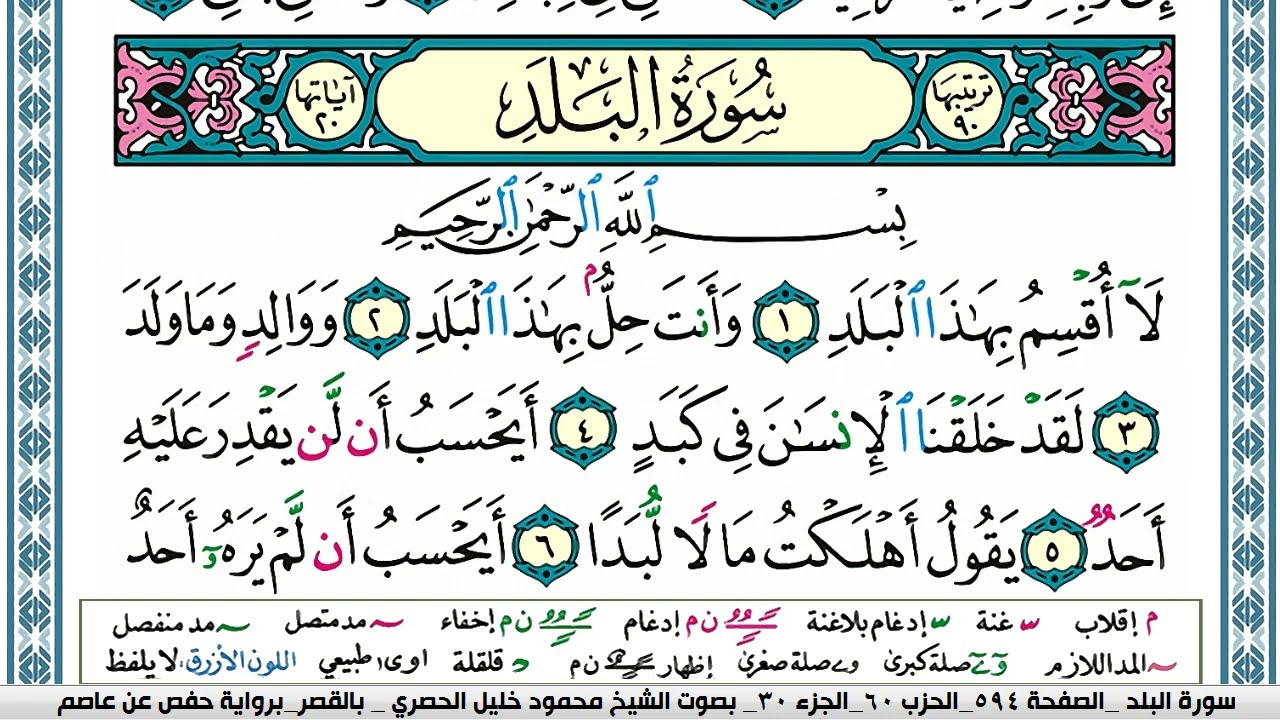 ترتيبها ٩٠ سُورَةُ البَلَدِ آياتها ٢٠
بِسْمِ ٱللَّهِ ٱلرَّحْمَٰنِ ٱلرَّحِيمِ
لَآ أُقْسِمُ بِهَٰذَا ٱلْبَلَدِ ١ وَأَنتَ حِلٌّۢ بِهَٰذَا ٱلْبَلَدِ ٢ وَوَالِدٍ وَمَا وَلَدَ
٣ لَقَدْ خَلَقْنَا ٱلْإِنسَٰنَ فِى كَبَدٍ ٤ أَيَحْسَبُ أَن لَّن يَقْدِرَ عَلَيْهِ
أَحَدٌ ٥ يَقُولُ أَهْلَكْتُ مَالًا لُّبَدًا ٦ أَيَحْسَبُ أَن لَّمْ يَرَهُۥٓ أَحَدٌ
م إقلاب س غنة س إدغام بلاغنة ن م إدغام ن م إخفاء ~ مد متصل ~ مد منفصل
~ المد اللازم و ے صلة كبرىٰ و ے صلة صغرىٰ إظهار ن م د قلقلة اوى طبيعي اللون الأزرق: لا يلفظ
سورة البلد _الصفحة ٥٩٤_الحزب ٦٠_الجزء ٣٠_ بصوت الشيخ محمود خليل الحصري _ بالقصر_برواية حفص عن عاصم